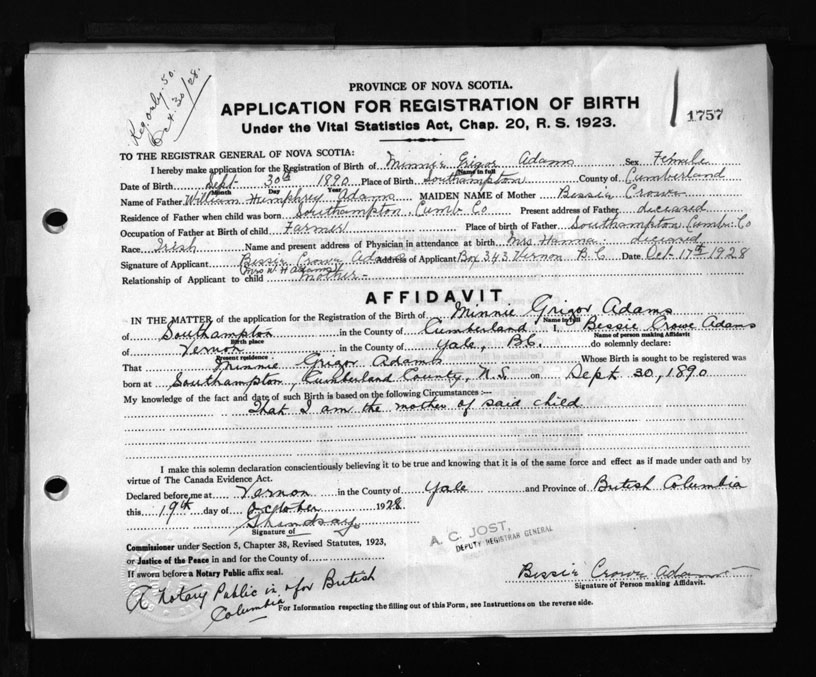 Reg. only. 50.
Oct. 30/28.
PROVINCE OF NOVA SCOTIA.
APPLICATION FOR REGISTRATION OF BIRTH
Under the Vital Statistics Act, Chap. 20, R. S. 1923.
1757
TO THE REGISTRAR GENERAL OF NOVA SCOTIA:
I hereby make application for the Registration of Birth of Minnie Grigor Adams Sex Female
Name in full
Date of Birth Sept. 30th 1890 Place of Birth Southampton County of Cumberland
Month Day Year
Name of Father William Humphrey Adams MAIDEN NAME of Mother Bessie Crowe
Residence of Father when child was born Southampton Cumb. Co Present address of Father deceased
Occupation of Father at Birth of child Farmer Place of birth of Father Southampton Cumb. Co
Race Irish Name and present address of Physician in attendance at birth Mrs Hanna deceased
Signature of Applicant Bessie Crowe Adams Address of Applicant Box 343 Vernon B.C. Date Oct 17th 1928
(Mrs W H Adams)
Relationship of Applicant to child Mother
AFFIDAVIT
IN THE MATTER of the application for the Registration of the Birth of Minnie Grigor Adams
Name in full
of Southampton in the County of Cumberland I, Bessie Crowe Adams
Birth place Name of person making Affidavit
of Vernon in the County of Yale, B.C. do solemnly declare:
Present residence
That Minnie Grigor Adams Whose Birth is sought to be registered was
born at Southampton, Cumberland County, N.S. on Sept 30, 1890
My knowledge of the fact and date of such Birth is based on the following Circumstances:—
That I am the mother of said child
I make this solemn declaration conscientiously believing it to be true and knowing that it is of the same force and effect as if made under oath and by
virtue of The Canada Evidence Act.
Declared before me at Vernon in the County of Yale and Province of British Columbia
this 19th day of October 1928
Signature of
A. C. JOST,
DEPUTY REGISTRAR GENERAL
Commissioner under Section 5, Chapter 38, Revised Statutes, 1923,
or Justice of the Peace in and for the County of
If sworn before a Notary Public affix seal.
Bessie Crowe Adams
Signature of Person making Affidavit.
A Notary Public in & for British
Columbia
For Information respecting the filling out of this Form, see Instructions on the reverse side.